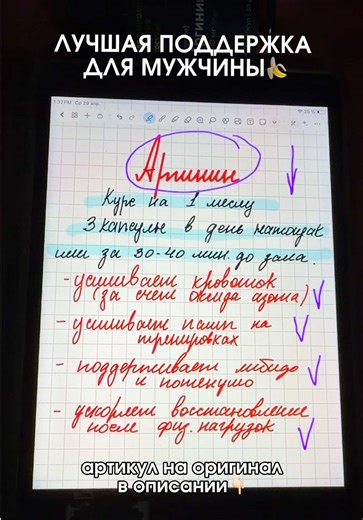 ЛУЧШАЯ ПОДДЕРЖКА
ДЛЯ МУЖЧИНЫ🍌
1:33 PM Ср 29 апр.
23 %
Аргинин
Курс на 1 месяц
3 капсулы в день натощак
или за 30-40 мин. до зала.
- усиливает кровоток
(за счет оксида азота)
- усиливает памп на
тренировках
- поддерживает либидо
и потенцию
- ускоряет восстановление
после физ. нагрузок
артикул на оригинал
в описании👇🏻